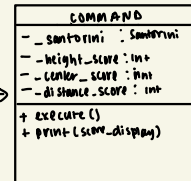 COMMAND
- _santorini : Santorini
- _height_score : int
- _center_score : int
- _distance_score : int
+ execute()
+ print(score_display)